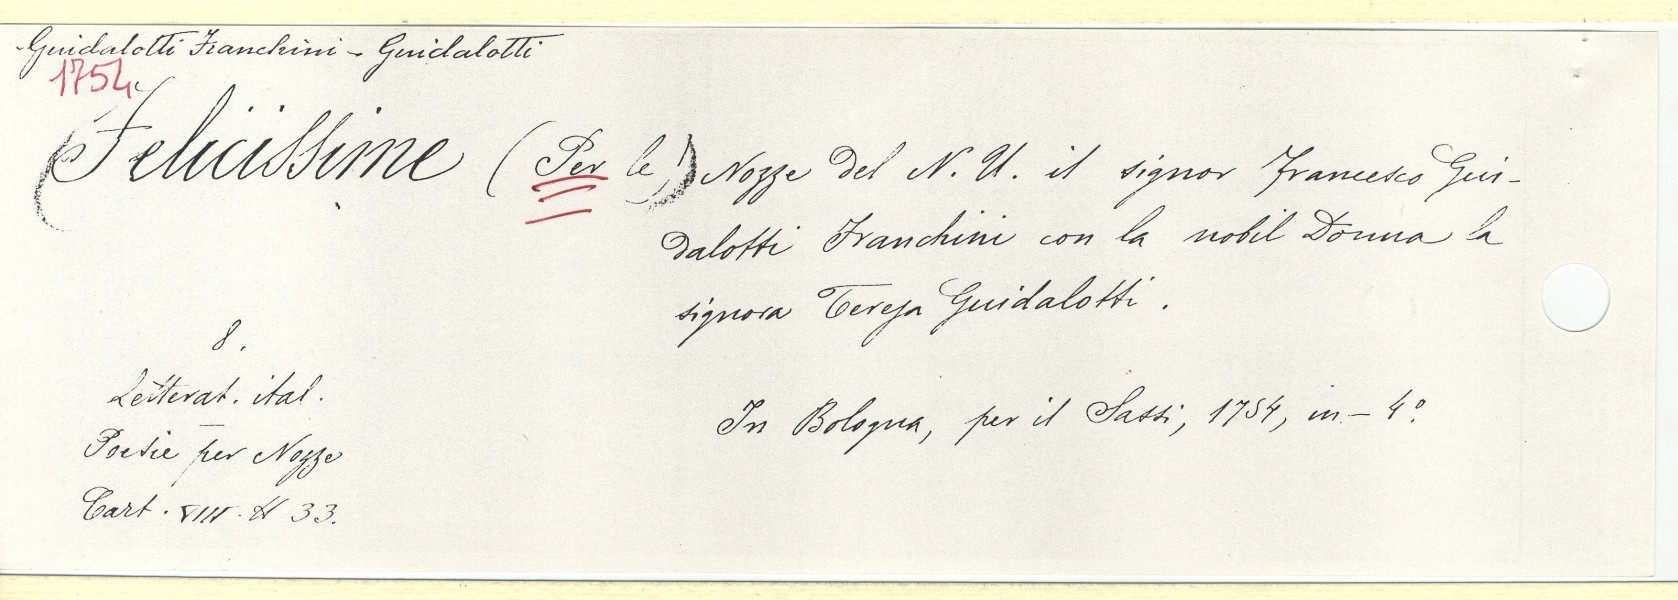 Guidalotti Franchini - Guidalotti
1754
(Felicissime (Per le)) Nozze del N. U. il signor Francesco Gui-
dalotti Franchini con la nobil Donna la
signora Teresa Guidalotti.
8.
Letterat. ital.
Poesie per Nozze
Cart. VIII. H 33.
In Bologna, per il Sassi, 1754, in-4º.